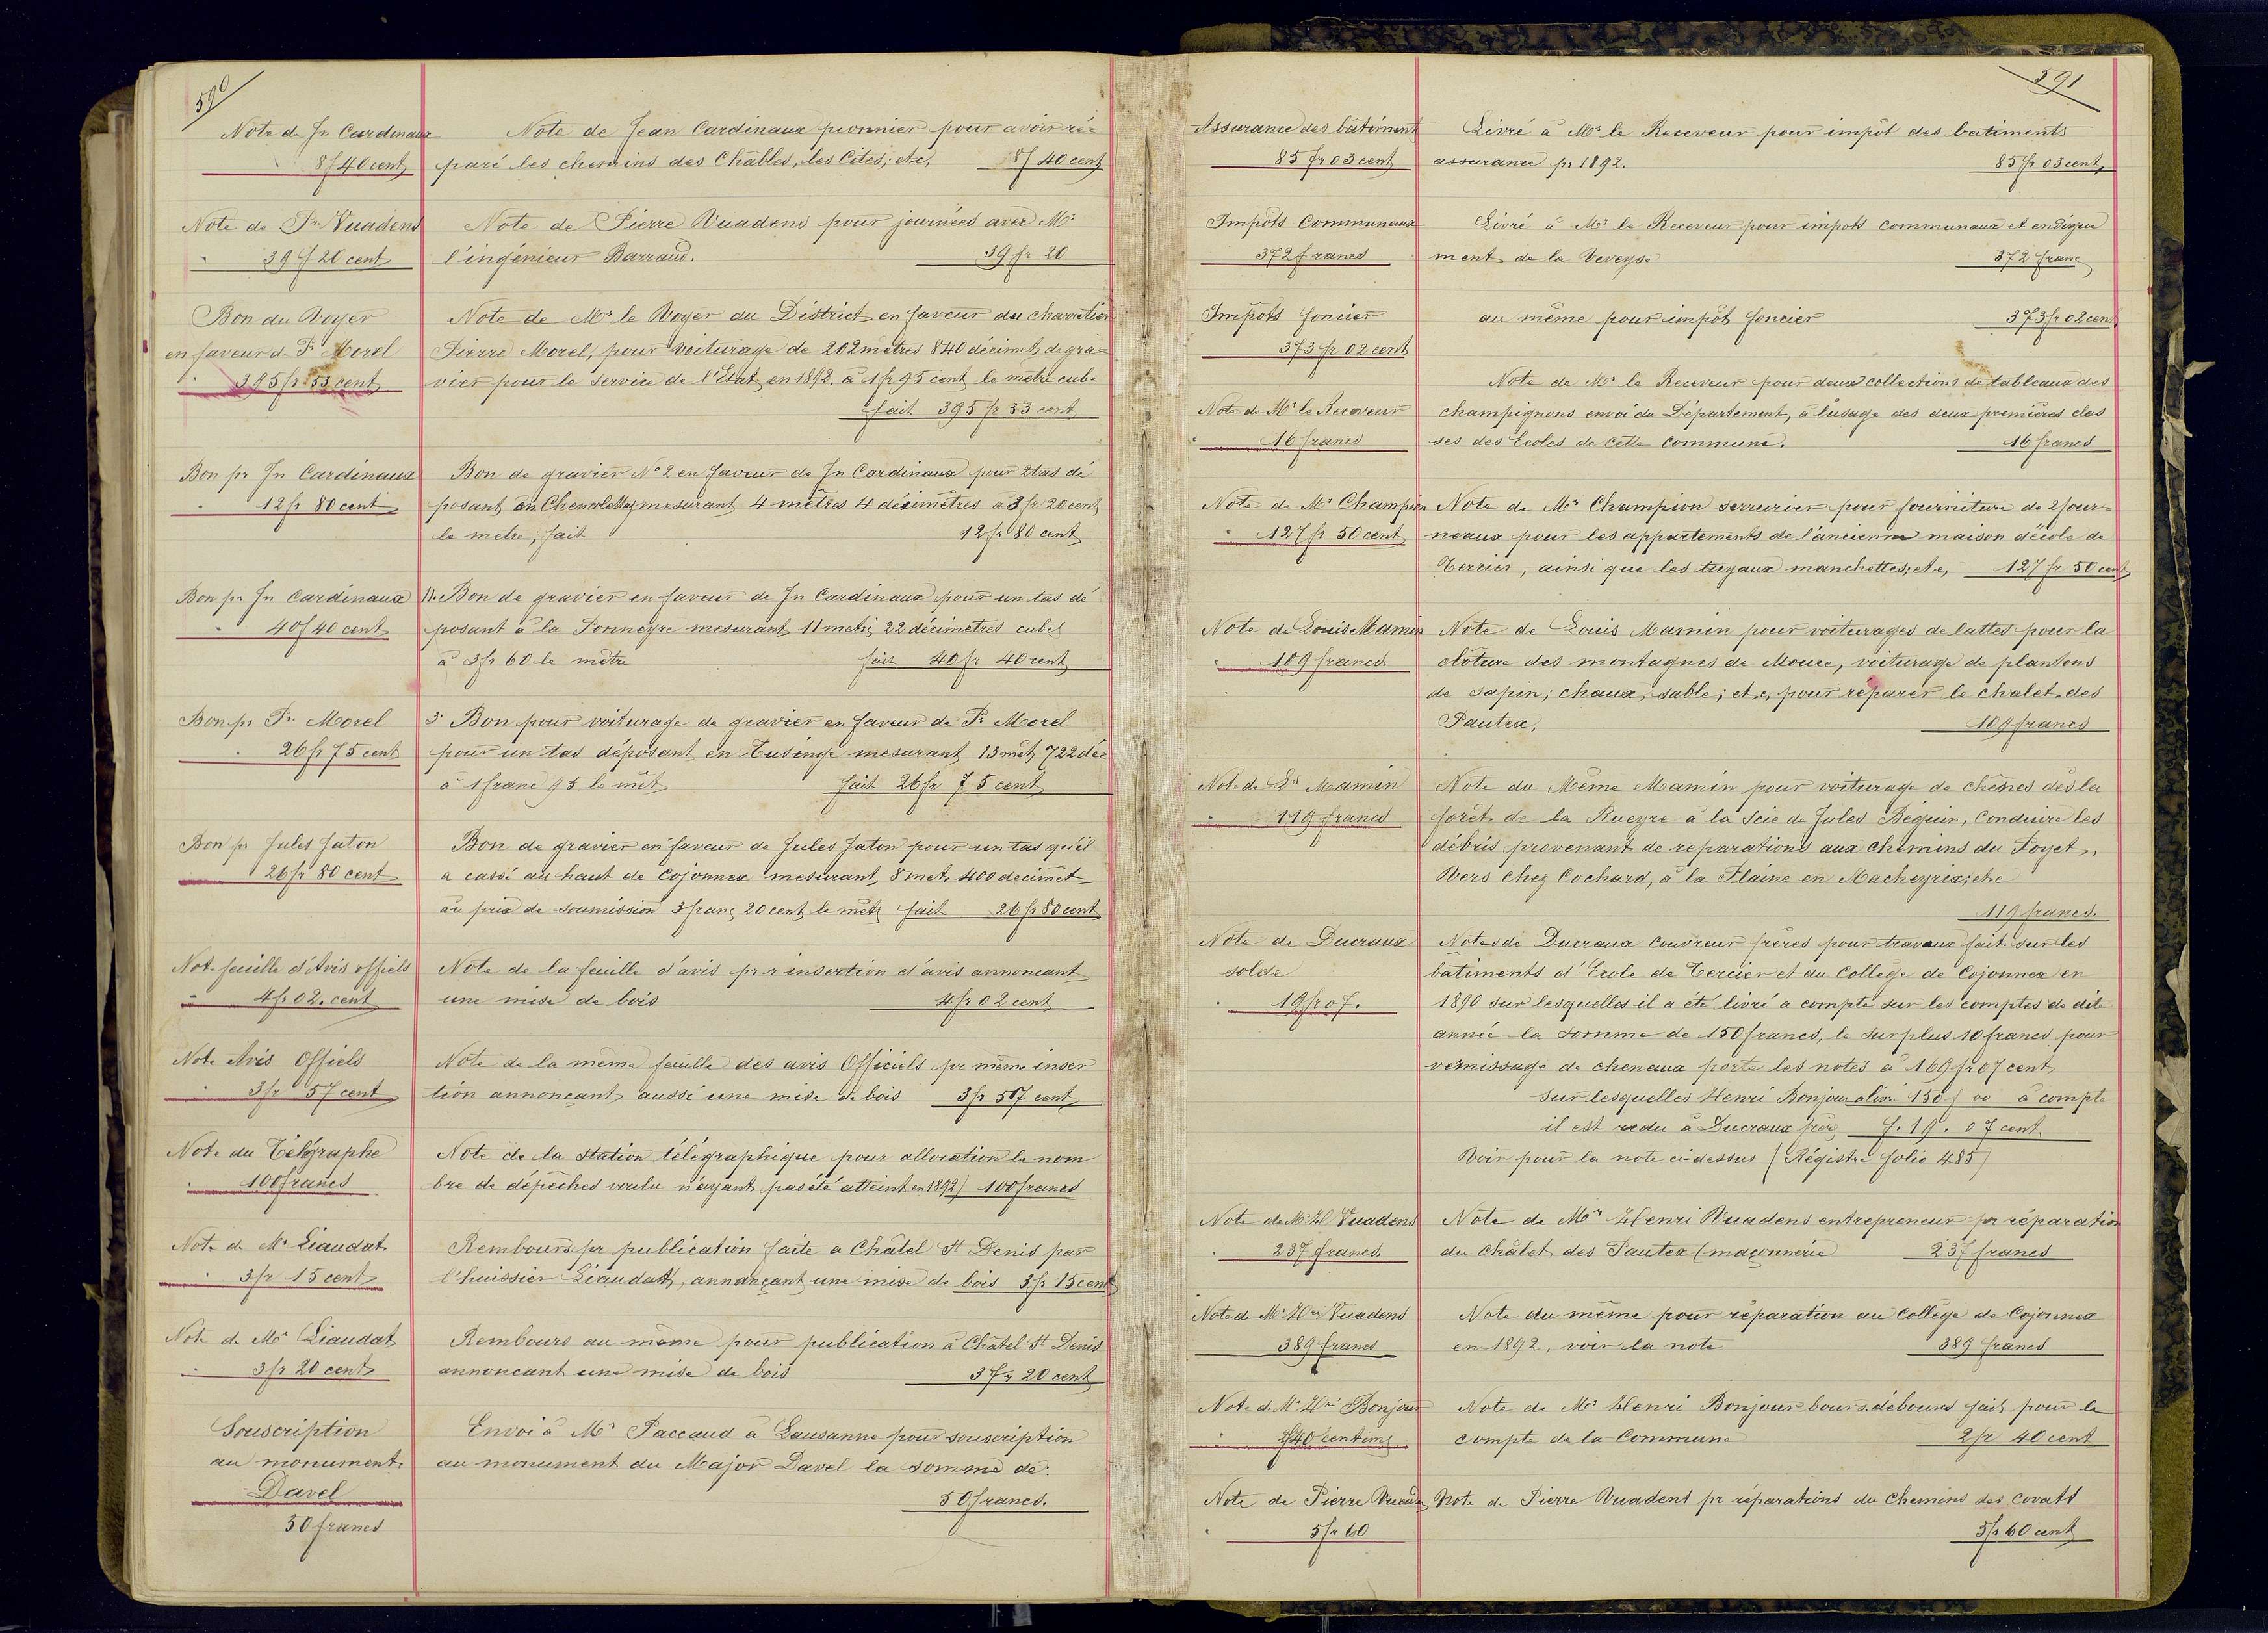 590
Note de Jn Cardinaux
8f 40 cent
Note de Jean Cardinaux pionnier pour avoir ré=
paré les chemins des Châbles, les Cites; etc, 8f 40 cent
Note de Pre Vuadens
39 f 20 cent
Note de Pierre Vuadens pour journées avec Mr
l'ingénieur Barraud. 39 fr 20
Bon du Voyer
en faveur de Pre Morel
395 fr 53 cent
Note de Mr le Voyer du District en faveur du charretier
Pierre Morel, pour voiturage de 202 mètres 840 décimets de gra=
vier pour le service de l'Etat en 1892. à 1 fr 95 cent le metre cube
fait 395 fr 53 cent
Bon pr Jn Cardinaux
12 fr 80 cent
Bon de gravier No 2 en faveur de Jn Cardinaux pour 2 tas dé
posant en mesurant 4 mètres 4 décimètres à 3 fr 20 cent
le metre; fait 12 fr 80 cent
Bon pr Jn Cardinaux
40 f 40 cent
Bon de gravier en faveur de Jn Cardinaux pour un tas dé
posant à la Ponneyre mesurant 11 metrs 22 décimètres cubes
à 3 fr 60 le mètre fait 40 fr 40 cent
Bon pr Pre Morel
26 fr 75 cent
3e Bon pour voiturage de gravier en faveur de Pre Morel
pour un tas déposant en Tusinge mesurant 13 mèt, 722 déc
à 1 franc 95 le mèt fait 26 fr 75 cent
Bon pr Jules Jaton
26 fr 80 cent
Bon de gravier en faveur de Jules Jaton pour un tas qu'il
a cassé au haut de Cojonnex mesurant, 8 mets 400 decimèt
au prix de soumission 3 franc 20 cent le mèt fait 26 fr 80 cent
Note feuille d'Avis offiels
4 fr 02. cent
Note de la feuille d'avis pr r insertion d'avis annoncant
une mise de bois 4 fr 02 cent
Note Avis Offiels
3 fr 57 cent
Note de la même feuille des avis Officiels pr même inser
tion annonçant aussi une mise de bois 3 fr 57 cent
Note du Télégraphe
100 francs
Note de la station télégraphique pour allocation le nom
bre de dépêches voulu n'ayant pas été atteint en 1892) 100 francs
Note de Mr Liaudat
3 fr 15 cent
Rembours pr publication faite a Châtel St Denis par
l'huissier Liaudat, annançant une mise de bois 3 fr 15 cent
Note de Mr Liaudat
3 fr 20 cent
Rembours au même pour publication à Châtel St Denis
annoncant une mise de bois 3 fr 20 cent
Souscription
au monument
Davel
50 francs
Envoi à Mr Paccaud à Lausanne pour souscription
au monument du Major Davel la somme de.
50 francs.
591
Assurance des bâtiments
85 fr 03 cent
Livré à Mr le Receveur pour impôt des batiments
assurance pr 1892. 85 fr 03 cent,
Impôts Communaux
372 francs
Livré à Mr le Receveur pour impots communaux et endigue
ment de la Veveyse 372 franc
Impôts foncier
373 fr 02 cent
au même pour impôt foncier 373 fr 02 cent
Note de Mr le Receveur
16 francs
Note de Mr le Receveur pour deux collections de tableaux des
champignons envoi du Département, à l'usage des deux premières clas
ses des Ecoles de cette commune. 16 francs
Note de Mr Champion
127 fr 50 cent
Note de Mr Champion serrurier pour fourniture de 2 four=
neaux pour les appartements de l'ancienne maison d'école de
Tercier, ainsi que les tuyaux manchettes; etc, 127 fr 50 cent
Note de Louis Mamin
109 francs.
Note de Louis Mamin pour voiturages de lattes pour la
clôture des montagnes de Mouce, voiturage de plantons
de sapin; chaux, sable; etc, pour réparer le chalet des
Pautex, 109 francs
Note de Ls Mamin
119 francs
Note du Même Mamin pour voiturage de chênes dès la
forêt de la Rueyre à la Scie de Jules Béguin, Conduire les
débris provenant de reparations aux chemins du Foyet,,
Vers chez Cochard, à la Plaine en Macheyrix; etc
119 francs.
Note de Ducraux
solde
19 fr 07.
Notes de Ducraux Couvreur frères pour travaux fait sur les
bâtiments d'Ecole de Tercier et du Collège de Cojonnex en
1890 sur lesquelles il a été livré a compte sur les comptes de dite
année la somme de 150 francs, le surplus 10 francs pour
vernissage de cheneaux porte les notes à 169 fr 07 cent
sur lesquelles Henri Bonjour a livré 150 f 00 à compte
il est redu à Ducraux frères f. 19. 07 cent
Voir pour la note ci-dessus (Régistre folio 485)
Note de Mr H Vuadens
237 francs.
Note de Mr Henri Vuadens entrepreneur pr réparation
du châlet des Pautex (maçonnerie 237 francs
Note de Mr Hri Vuadens
389 francs
Note du même pour réparation au Collège de Cojonnex
en 1892, voir la note 389 francs
Note de Mr Hri Bonjour
2f 40 centimes
Note de Mr Henri Bonjour bours. débours fait pour le
compte de la Commune 2 fr 40 cent
Note de Pierre Vuadens
5 fr 60
Note de Pierre Vuadent pr réparations du chemins des Covatts
5 fr 60 cent